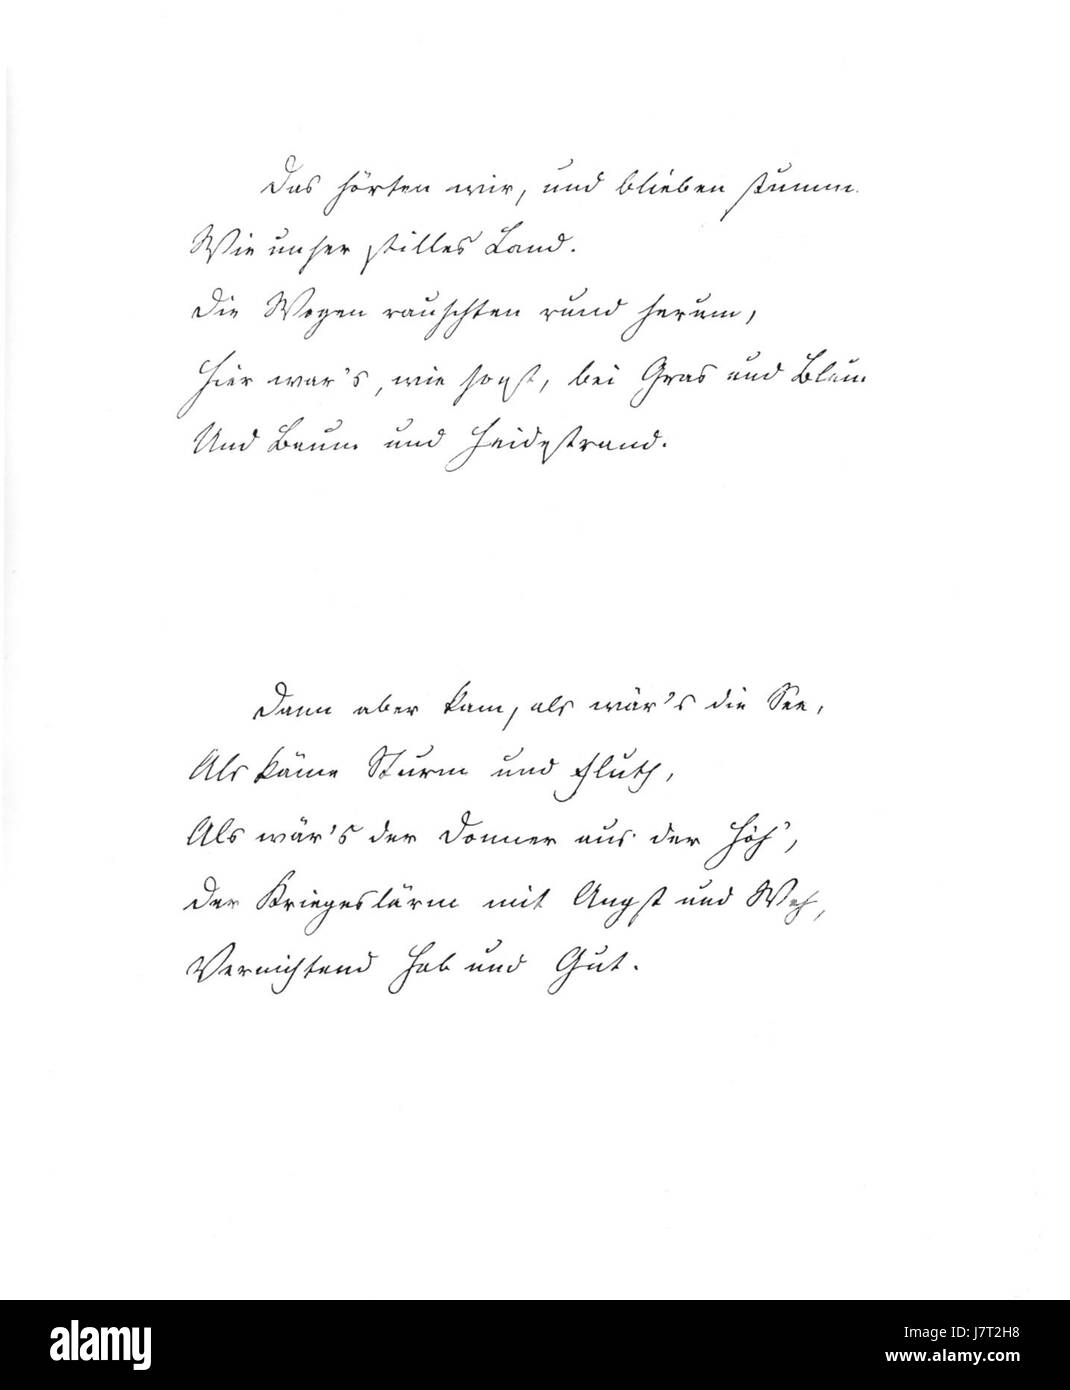 Das hörten wir, und blieben stumm
Wie unser stilles Land.
Die Wogen rauschten rund herum,
Hier war's, wie sonst, bei Gras und Blum
Und Baum und Heidestrand.
Dann aber kam, als wär's die See,
Als käme Sturm und Fluth,
Als wär's der Donner aus der Höh',
Der Kriegeslärm mit Angst und Weh,
Vernichtend Hab und Gut.
alamy
Image ID: J7T2H8
www.alamy.com